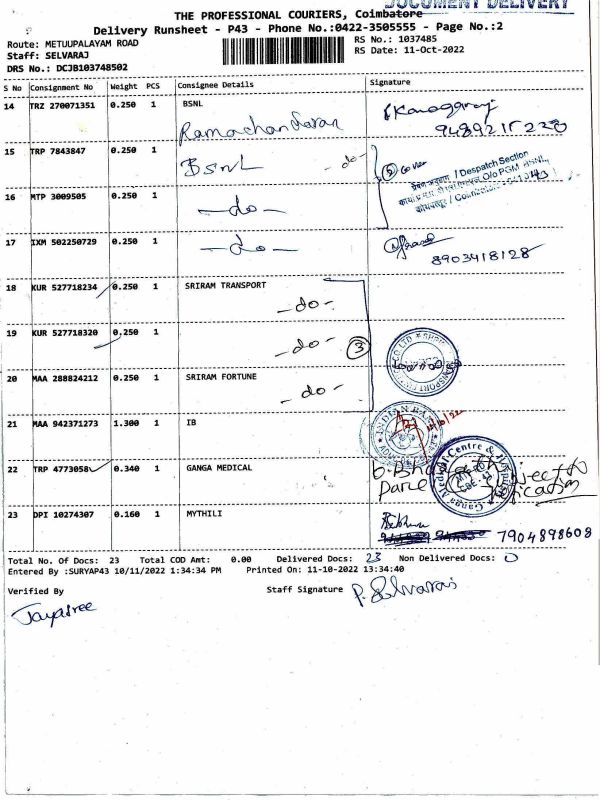 DOCUMENT DELIVERY
THE PROFESSIONAL COURIERS, Coimbatore
Delivery Runsheet - P43 - Phone No.:0422-3505555 - Page No.:2
Route: METUUPALAYAM ROAD
RS No.: 1037485
Staff: SELVARAJ
RS Date: 11-Oct-2022
DRS No.: DCJB103748502
S No Consignment No Weight PCS Consignee Details Signature
14 TRZ 270071351 0.250 1 BSNL
Ramachandaran
9489215220
15 TRP 7843847 0.250 1 BSNL -do-
5 Cover
/ Despatch Section
O/o PGM, BSNL,
16 MTP 3009505 0.250 1 -do-
17 IXM 502250729 0.250 1 -do-
8903418128
18 KUR 527718234 0.250 1 SRIRAM TRANSPORT
-do-
19 KUR 527718320 0.250 1 -do- 3
20 MAA 288824212 0.250 1 SRIRAM FORTUNE
-do-
21 MAA 942371273 1.300 1 IB
INDIAN BANK
22 TRP 4773058 0.340 1 GANGA MEDICAL
Ganga Medical Centre &
23 DPI 10274307 0.160 1 MYTHILI
7904898608
Total No. Of Docs: 23 Total COD Amt: 0.00 Delivered Docs: 23 Non Delivered Docs: 0
Entered By :SURYAP43 10/11/2022 1:34:34 PM Printed On: 11-10-2022 13:34:40
Verified By Staff Signature P. Selvaraj
Jayasree